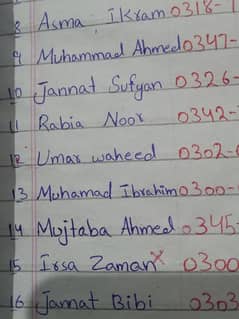 8 Asma Ikram 0318-1
9 Muhammad Ahmed 0347-
10 Jannat Sufyan 0326-
11 Rabia Noor 0342-
12 Umar waheed 0302-
13 Muhamad Ibrahim 0300-
14 Mujtaba Ahmed 0345-
15 Irsa Zaman x 0300
16 Jannat Bibi 0303